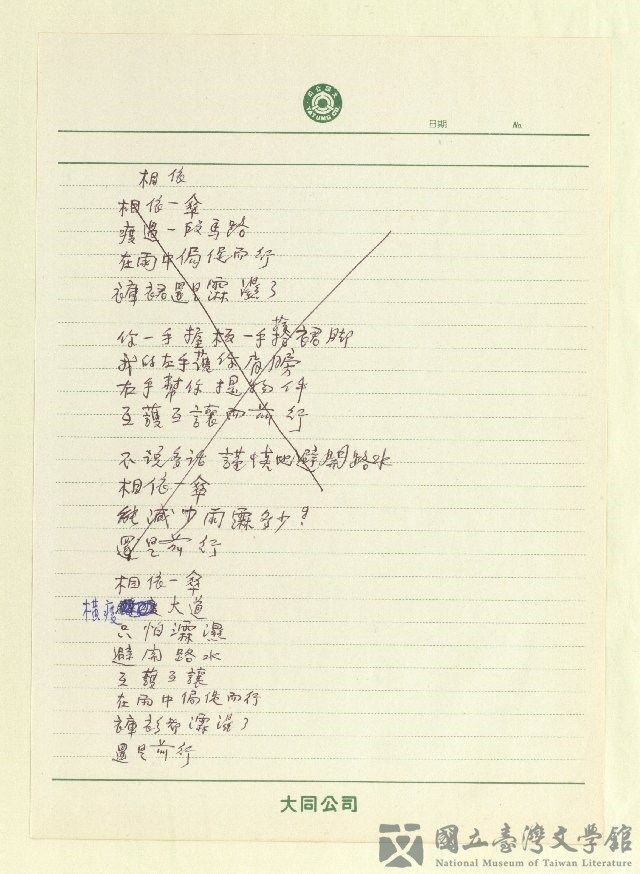 大同公司
TATUNG CO.
日期 No
相依
相依一傘
痠過一段馬路
在雨中侷促而行
褲裙還是霖濕了
你一手握 一手護裙脚
我的左手護你肩膀
右手幫你提物件
互護互讓而前行
不說多話 謹慎地避開路水
相依一傘
能減少雨霖多少！
還是前行
相依一傘
橫痠 大道
只怕霖濕
避開路水
互護互讓
在雨中侷促而行
褲衫都霖濕了
還是前行
大同公司
國立臺灣文學館
National Museum of Taiwan Literature